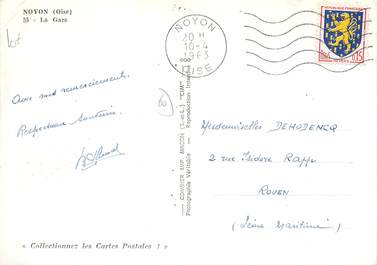 NOYON (Oise)
35 - La Gare
NOYON
20 H
10-4
1963
OISE
REPUBLIQUE FRANÇAISE
0,15
Avec mes remerciements.
Respectueux
Mesdemoiselles DEHODENCQ
2 rue Isidore Rapp
ROUEN
(Seine Maritime)
COMBIER IMP. MACON (S.-et-L.) "CIM"
Photographie Véritable - Reproduction
« Collectionnez les Cartes Postales ! »